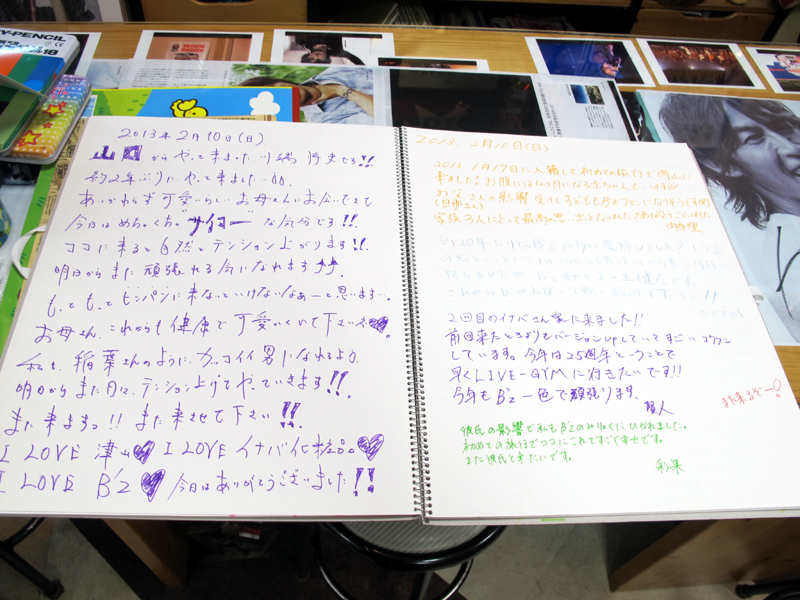 2013年2月10日(日)
山口からやって来ました川端 将史です!!
約2年ぶりにやって来ました
あいかわらず可愛いらしいお母さんにお会いできて
今日はめちゃくちゃサイコーな気分です!!
ココに来ると自然とテンション上がります!!
明日からまた頑張れる気になれます
もっともっとヒンパンに来ないといけないなぁーと思います…
お母さん、これからも健康で可愛いくいて下さいネ♥
私も、稲葉さんのようにカッコイイ男になれるよう
明日からまた日々、テンション上げてやっていきます!!
また来ますっ!! また来させて下さい!!
I LOVE 津山♥ I LOVE イナバ化粧品♥
I LOVE B'z♥ 今日はありがとうございました!!
2013. 2月10日(日)
2013. 1月17日に入籍して初めての旅行で岡山に
来ました!お腹には4ヶ月になる赤ちゃんもいますが
お父さんの影響受けて子どももB'zファンになりそうです(笑)
家族3人にとって最高の思い出となりました。ありがとうございました
2回目のイナバさん家に来ました!!
前回来たときよりもバージョンupしていてすごいコウフン
しています。今年は25周年ということで
早くLIVE-GYMに行きたいです!!
今年もB'z一色で頑張ります。
賢人
また来るぞー!
彼氏の影響で私もB'zのみりょくにひかれました。
初めての旅行でココにこれてすごく幸せです。
また彼氏と来たいです。
彩果